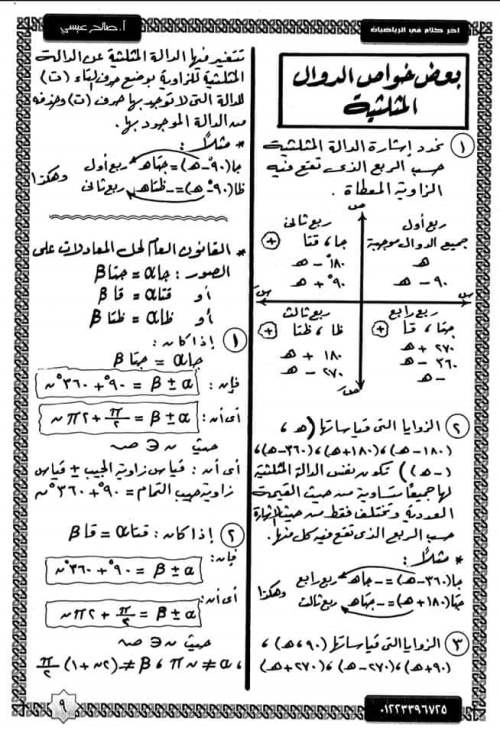 آخر كلام في الرياضيات
أ. صالح عيسى
بعض خواص الدوال
المثلثية
١ نحدد إشارة الدالة المثلثية
حسب الربع الذى تقع فيه
الزاوية المعطاة.
ص
ربع ثانى
جا، قتا +
١٨٠ - هـ
٩٠ + هـ
ربع أول
جميع الدوال موجبة
هـ
٩٠ - هـ
س
سَ
ربع ثالث
ظا، ظتا +
١٨٠ + هـ
٢٧٠ - هـ
ربع رابع
جتا، قا +
٢٧٠ + هـ
٣٦٠ - هـ
- هـ
صَ
٢ الزوايا التى قياساتها (هـ،
(١٨٠-هـ)،(١٨٠+هـ)،(٣٦٠-هـ)،
(-هـ)) تكون نفس الدالة المثلثية
لها جميعاً متساوية من حيث القيمة
العددية وتختلف فقط من حيث الإشارة
حسب الربع الذى تقع فيه كل منها.
* مثلاً:
جا(٣٦٠-هـ)=-جاهـ ربع رابع
جتا(١٨٠+هـ)=-جتاهـ ربع ثالث
وهكذا
٣ الزوايا التى قياساتها (٩٠-هـ)،
(٩٠+هـ)،(٢٧٠-هـ)،(٢٧٠+هـ)
تتغير فيها الدالة المثلثية عن الدالة
المثلثية للزاوية بوضع حرف التاء (ت)
للدالة التى لا توجد بها حرف (ت) وحذفه
من الدالة الموجود بها.
* مثلاً:
جا(٩٠°-هـ)=جتاهـ ربع أول
ظا(٩٠°+هـ)=-ظتاهـ ربع ثانى
وهكذا
* القانون العام لحل المعادلات على
الصور: جاα=جتاβ
أو قتاα=قاβ
أو ظاα=ظتاβ
١ إذا كان:
جاα=جتاβ
فإن: α±β = ٩٠°+٣٦٠°ن
أى أن: α±β = π/٢ +٢πن
حيث ن∋صـ
أى أن: قياس زاوية الجيب ± قياس
زاوية جيب التمام=٩٠°+٣٦٠°ن
٢ إذا كان: قتاα=قاβ
فإن: α±β = ٩٠°+٣٦٠°ن
أى أن: α±β = π/٢ +٢πن
حيث ن∋صـ
، α≠نπ، β≠(٢ن+١)π/٢
٩
٠١٢٢٣٣٩٦٧٢٥